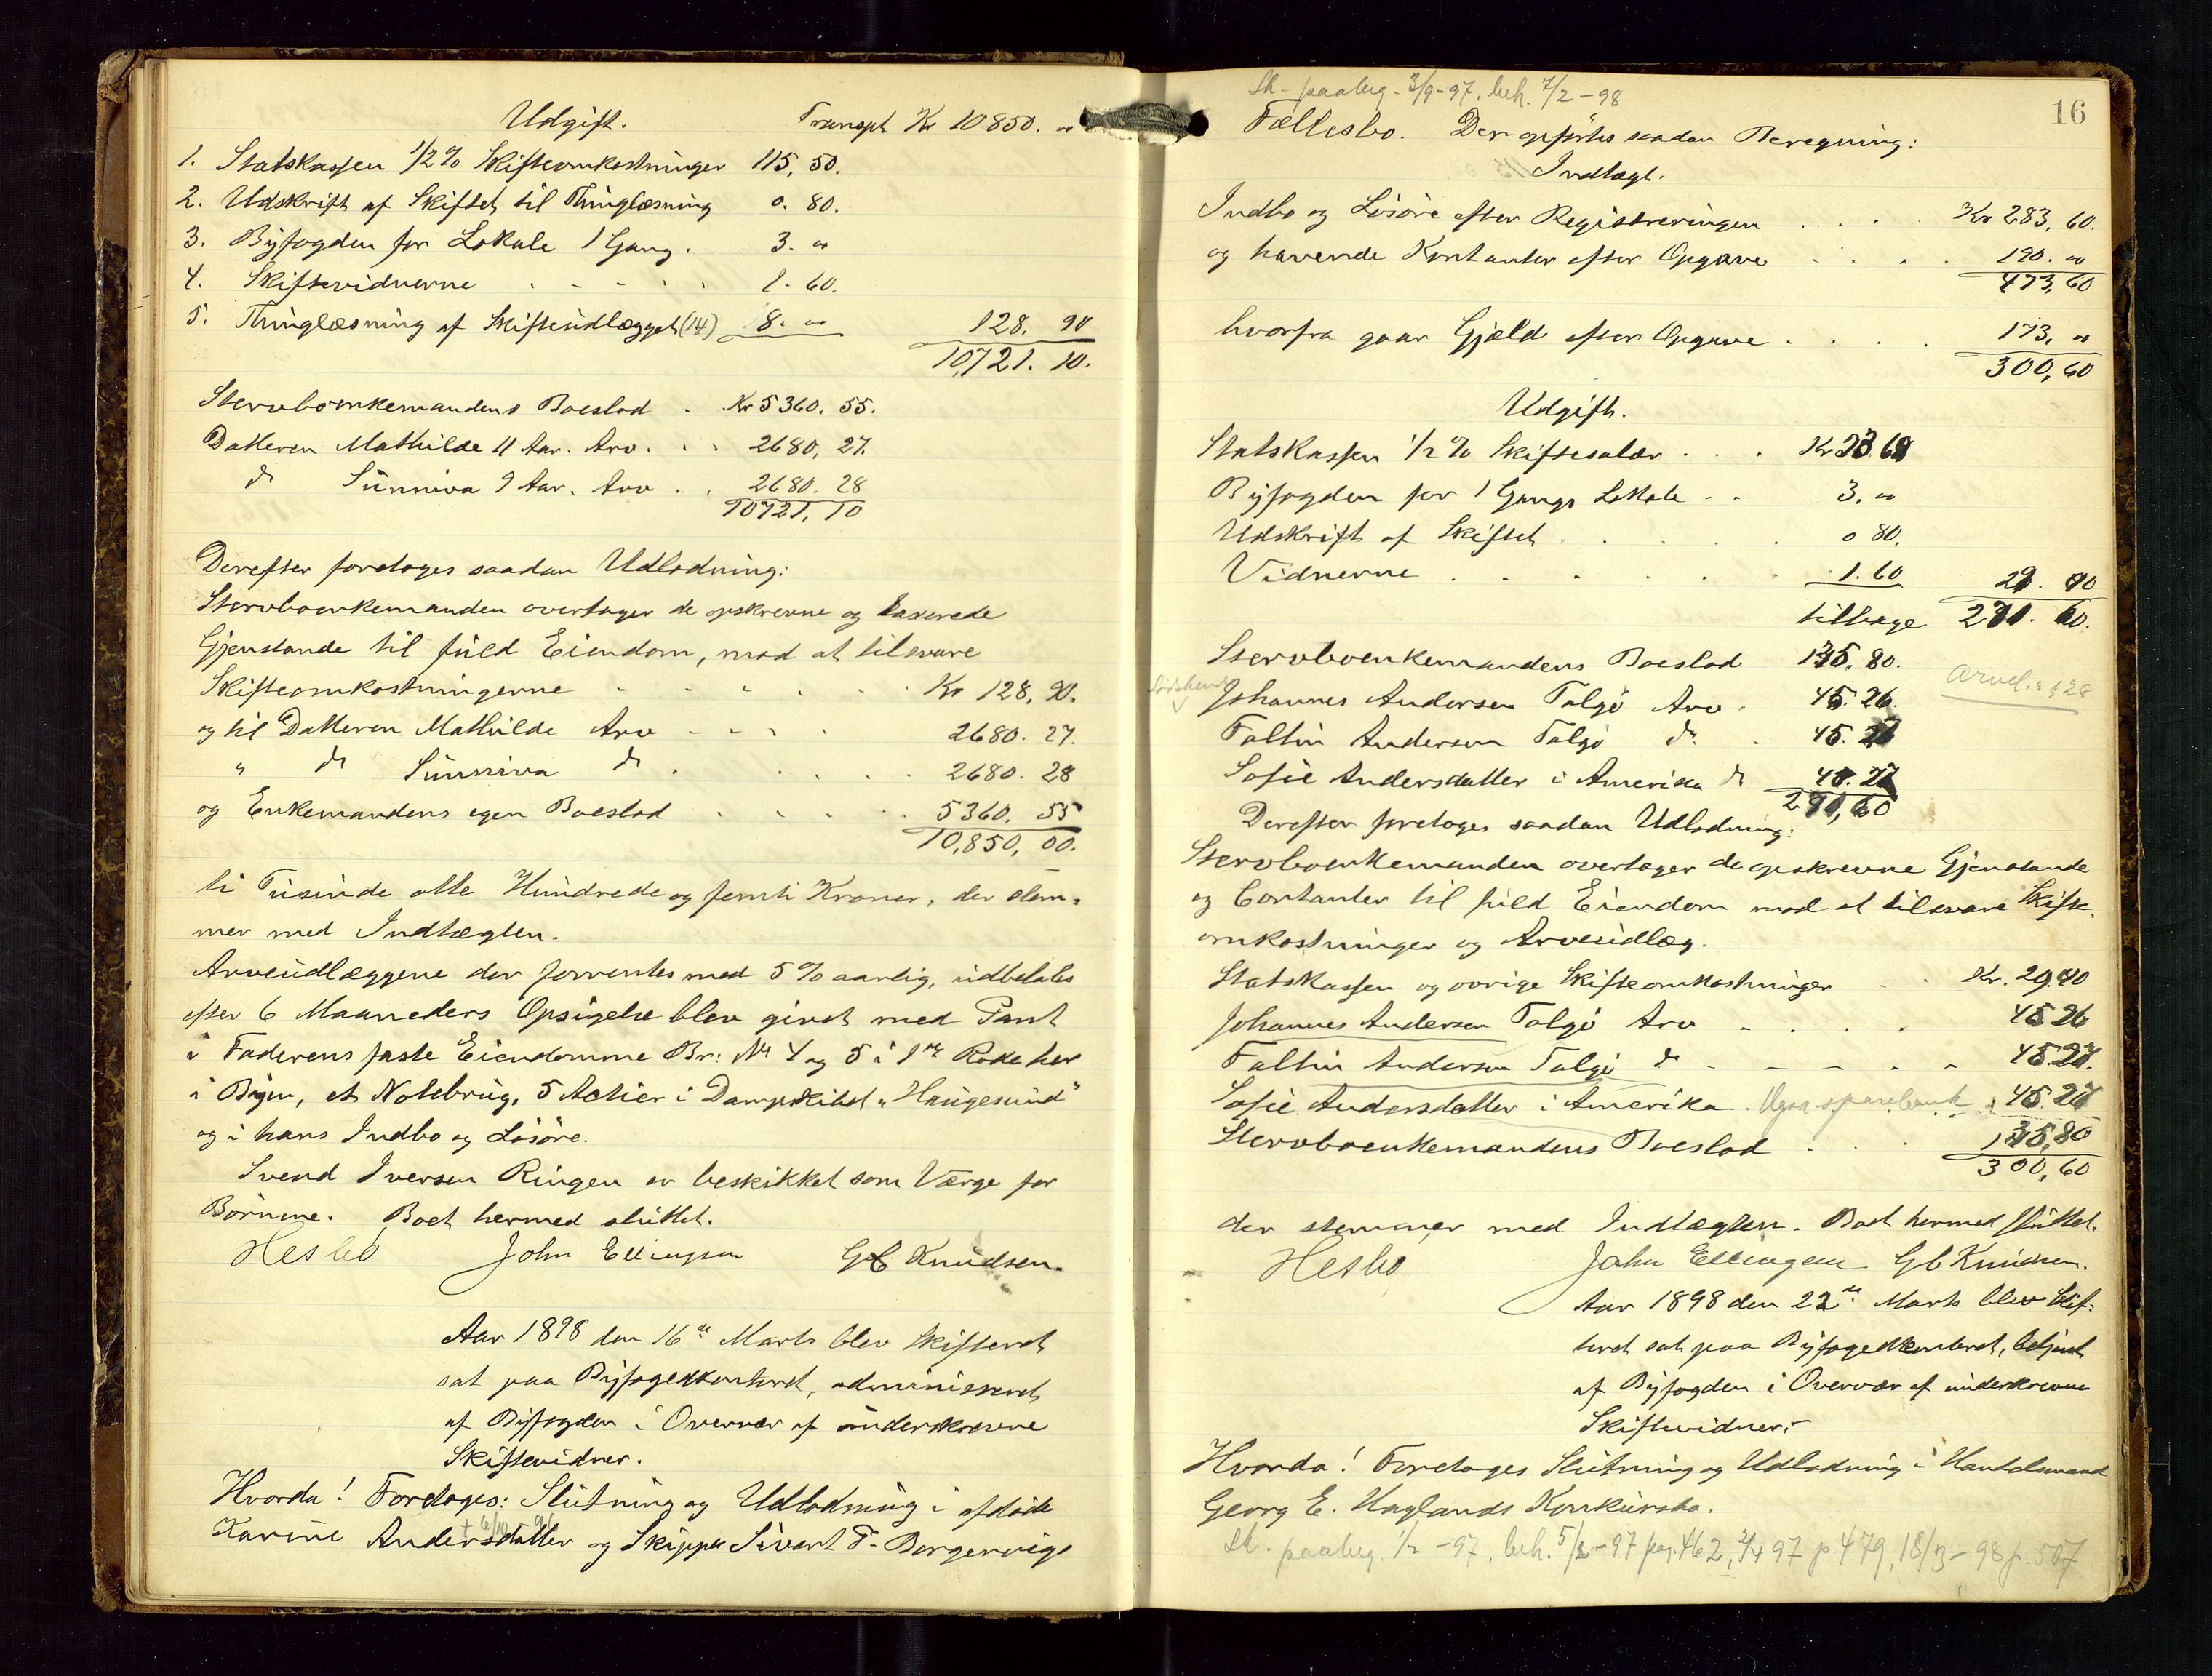 Udgift. Transpt Kr 10850. "
1. Statskassen 1/2 % Skifteomkostninger 115, 50.
2. Udskrift af Skiftet til Thinglæsning 0. 80.
3. Byfogden for Lokale 1 Gang. 3. "
4. Skiftevidnerne . . . . 1. 60.
5. Thinglæsning af Skifteudlægget (14) 8. " 128. 90
10,721. 10.
Stervboenkemandens Boeslod . Kr 5360. 55.
Datteren Mathilde 11 Aar. Arv. . . 2680, 27.
do Sünniva 9 Aar. Arv . . 2680. 28
10721, 10
Derefter foretoges saadan Udlodning:
Stervboenkemanden overtager de opskrevne og taxerede
Gjenstande til füld Eiendom, mod at tilsvare
Skifteomkostningerne . . . . . Kr 128, 90.
og til Datteren Mathilde Arv . . . . 2680. 27.
" do Sünniva do . . . . . 2680. 28
og Enkemandens egen Boeslod . . . . 5360. 55
10,850, 00.
ti Tüsinde otte Hündrede og femti Kroner, der stem=
mer med Indtægten.
Arveüdlæggene der forrentes med 5 % aarlig, üdbetales
efter 6 Maaneders Opsigelse blev givet med Pant
i Faderens faste Eiendomme Br: No 4 og 5 i 1ste Rode her
i Byen, et Notebrüg, 5 Actier i Dampskibet "Haügesünd"
og i hans Indbo og Løsøre.
Svend Iversen Ringen er beskikket som Værge for
Børnene. Boet hermed slüttet.
Hesbo John Ellingsen G C Knüdsen.
Aar 1898 den 16de Marts blev Skifteret
sat paa Byfogedkontoret, administreret
af Byfogden i Overvær af ünderskrevne
Skiftevidner.
Hvorda! Foretoges: Slütning og Udlodning i afdøde
+ 6/10 - 96
Karine Andersdatter og Skipper Sivert T. Borgervigs
16
Sk. paabeg. 3/9-97, beh. 7/2-98
Fællesbo. Der opførtes saadan Beregning:
Indtægt.
Indbo og Løsøre efter Registreringen . . . . Kr 283, 60.
og havende Kontanter efter Opgave . . . . 190. "
473, 60
hvorfra gaar Gjæld efter Opgave . . . . 173, "
300, 60
Udgift.
Statskassen 1/2 % Skiftesalær . . . Kr
Byfogden for 1 Gangs Lokale . . 3. "
Udskrift af Skiftet . . . . . 0 80.
Vidnerne . . . . . . 1. 60
tilbage
Stervboenkemandens Boeslod 135, 80.
Johannes Andersen Talgø Arv . 45. 26.
Faltin Andersen Talgø do . 45. 27
Sofie Andersdatter i Amerika do 45. 27
271, 60
Derefter foretoges saadan Udlodning:
Stervboenkemanden overtager de opskrevne Gjenstande
og Contanter til füld Eiendom mod at tilsvare Skifte-
omkostninger og Arveüdlæg.
Statskassen og øvrige Skifteomkostninger . . Kr.
Johannes Andersen Talgø Arv . . . . 45 26
Faltin Andersen Talgø do . . . . . 45.27.
Sofie Andersdatter i Amerika. sparebank 45.27
Stervboenkemandens Boeslod . . 135,80
300, 60
der stemmer med Indtægten. Boet hermed slüttet.
Hesbo John Ellingsen G C Knüdsen.
Aar 1898 den 22de Marts blev Skif=
teret sat paa Byfogedkontoret, betjent
af Byfogden i Overvær af ünderskrevne
Skiftevidner:
Hvorda! Foretoges Slütning og Udlodning i Handelsmand
Georg E. Haglands Konkürsbo.
Sk. paabeg. 1/2 -97, beh. 5/2-97 pag. 462, 2/4 97 p 479, 18/3-98 p. 507